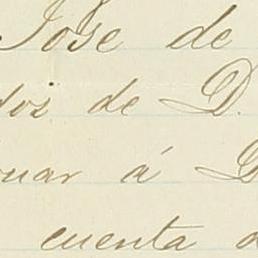 Jose de
dos de D.
nuar á D
cuenta d